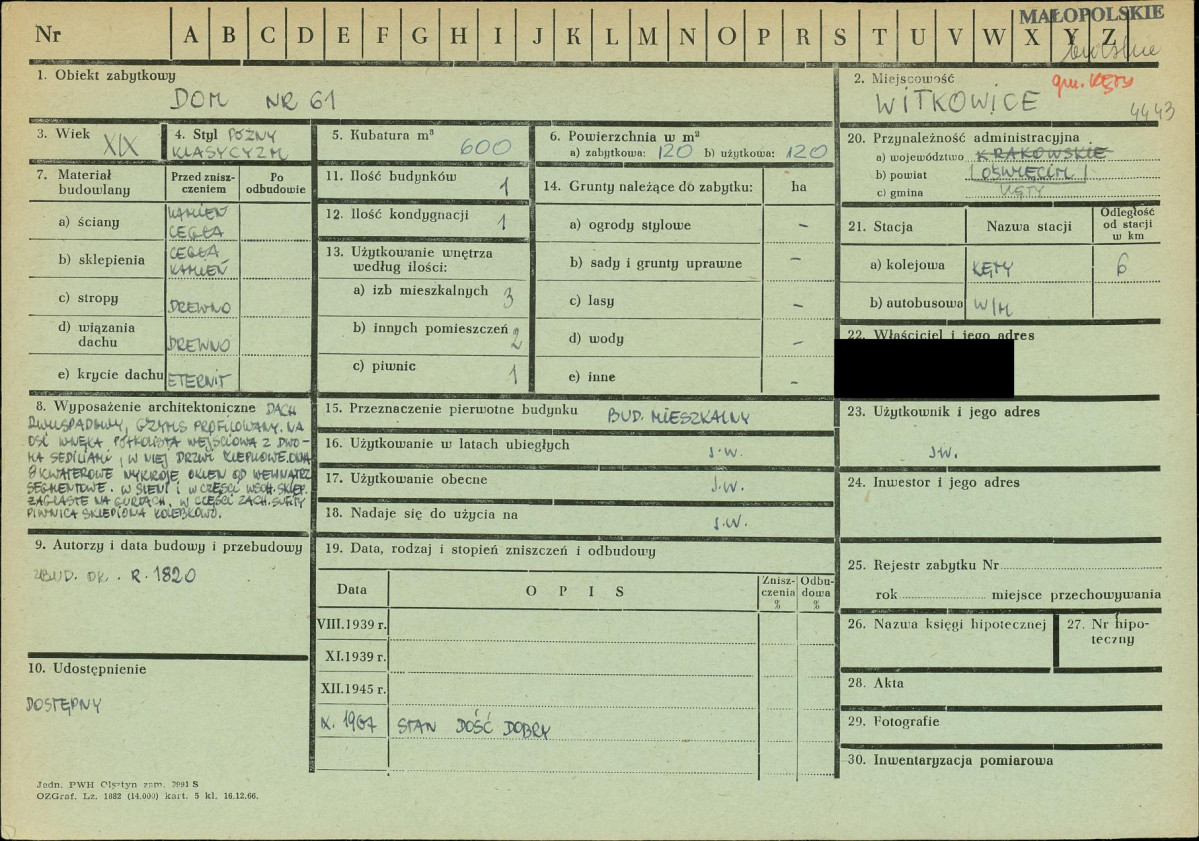 MAŁOPOLSKIE
Nr A B C D E F G H I J K L M N O P R S T U V W X Y Z
1. Obiekt zabytkowy
DOM NR 61
2. Miejscowość
gm. KĘTY
WITKOWICE
4443
3. Wiek XIX
4. Styl PÓŹNY
KLASYCYZM
5. Kubatura m³
600
6. Powierzchnia w m²
a) zabytkowa: 120 b) użytkowa: 120
7. Materiał budowlany
Przed zniszczeniem
Po odbudowie
a) ściany KAMIEŃ
CEGŁA
b) sklepienia CEGŁA
KAMIEŃ
c) stropy DREWNO
d) wiązania dachu DREWNO
e) krycie dachu ETERNIT
8. Wyposażenie architektoniczne DACH
DWUSPADOWY, GZYMS PROFILOWANY. NA
OŚĆ WNĘKA PÓŁKOLISTA WEJŚCIOWA Z DWO-
MA SEDILIAMI, W NIEJ DRZWI KLEPKOWE. OKNA
8 KWATEROWE WYKROJE OKIEN OD WEWNĄTRZ
SEGMENTOWE. W SIENI I W CZĘŚCI WSCH. SKLEP.
ŻAGLASTE NA GURTACH, W CZĘŚCI ZACH. SUFITY
PIWNICA SKLEPIONA KOLEBKOWO.
9. Autorzy i data budowy i przebudowy
ZBUD. OK. R. 1820
10. Udostępnienie
DOSTĘPNY
11. Ilość budynków 1
12. Ilość kondygnacji 1
13. Użytkowanie wnętrza
według ilości:
a) izb mieszkalnych 3
b) innych pomieszczeń 2
c) piwnic 1
14. Grunty należące do zabytku: ha
a) ogrody stylowe –
b) sady i grunty uprawne –
c) lasy –
d) wody –
e) inne –
15. Przeznaczenie pierwotne budynku BUD. MIESZKALNY
16. Użytkowanie w latach ubiegłych J.W.
17. Użytkowanie obecne J.W.
18. Nadaje się do użycia na J.W.
19. Data, rodzaj i stopień zniszczeń i odbudowy
Data
O P I S
Zniszczenia %
Odbudowa %
VIII.1939 r.
XI.1939 r.
XII.1945 r.
X. 1967 STAN DOŚĆ DOBRY
20. Przynależność administracyjna
a) województwo KRAKOWSKIE
b) powiat OŚWIĘCIM
c) gmina KĘTY
21. Stacja
Nazwa stacji
Odległość
od stacji
w km
a) kolejowa KĘTY 6
b) autobusowa W/M
22. Właściciel i jego adres
23. Użytkownik i jego adres
J.W.
24. Inwestor i jego adres
25. Rejestr zabytku Nr
rok miejsce przechowywania
26. Nazwa księgi hipotecznej
27. Nr hipo-
teczny
28. Akta
29. Fotografie
30. Inwentaryzacja pomiarowa
Jedn. PWH Olsztyn zam. 2991 S
OZGraf. Lz. 1882 (14.000) kart. 5 kl. 16.12.66.